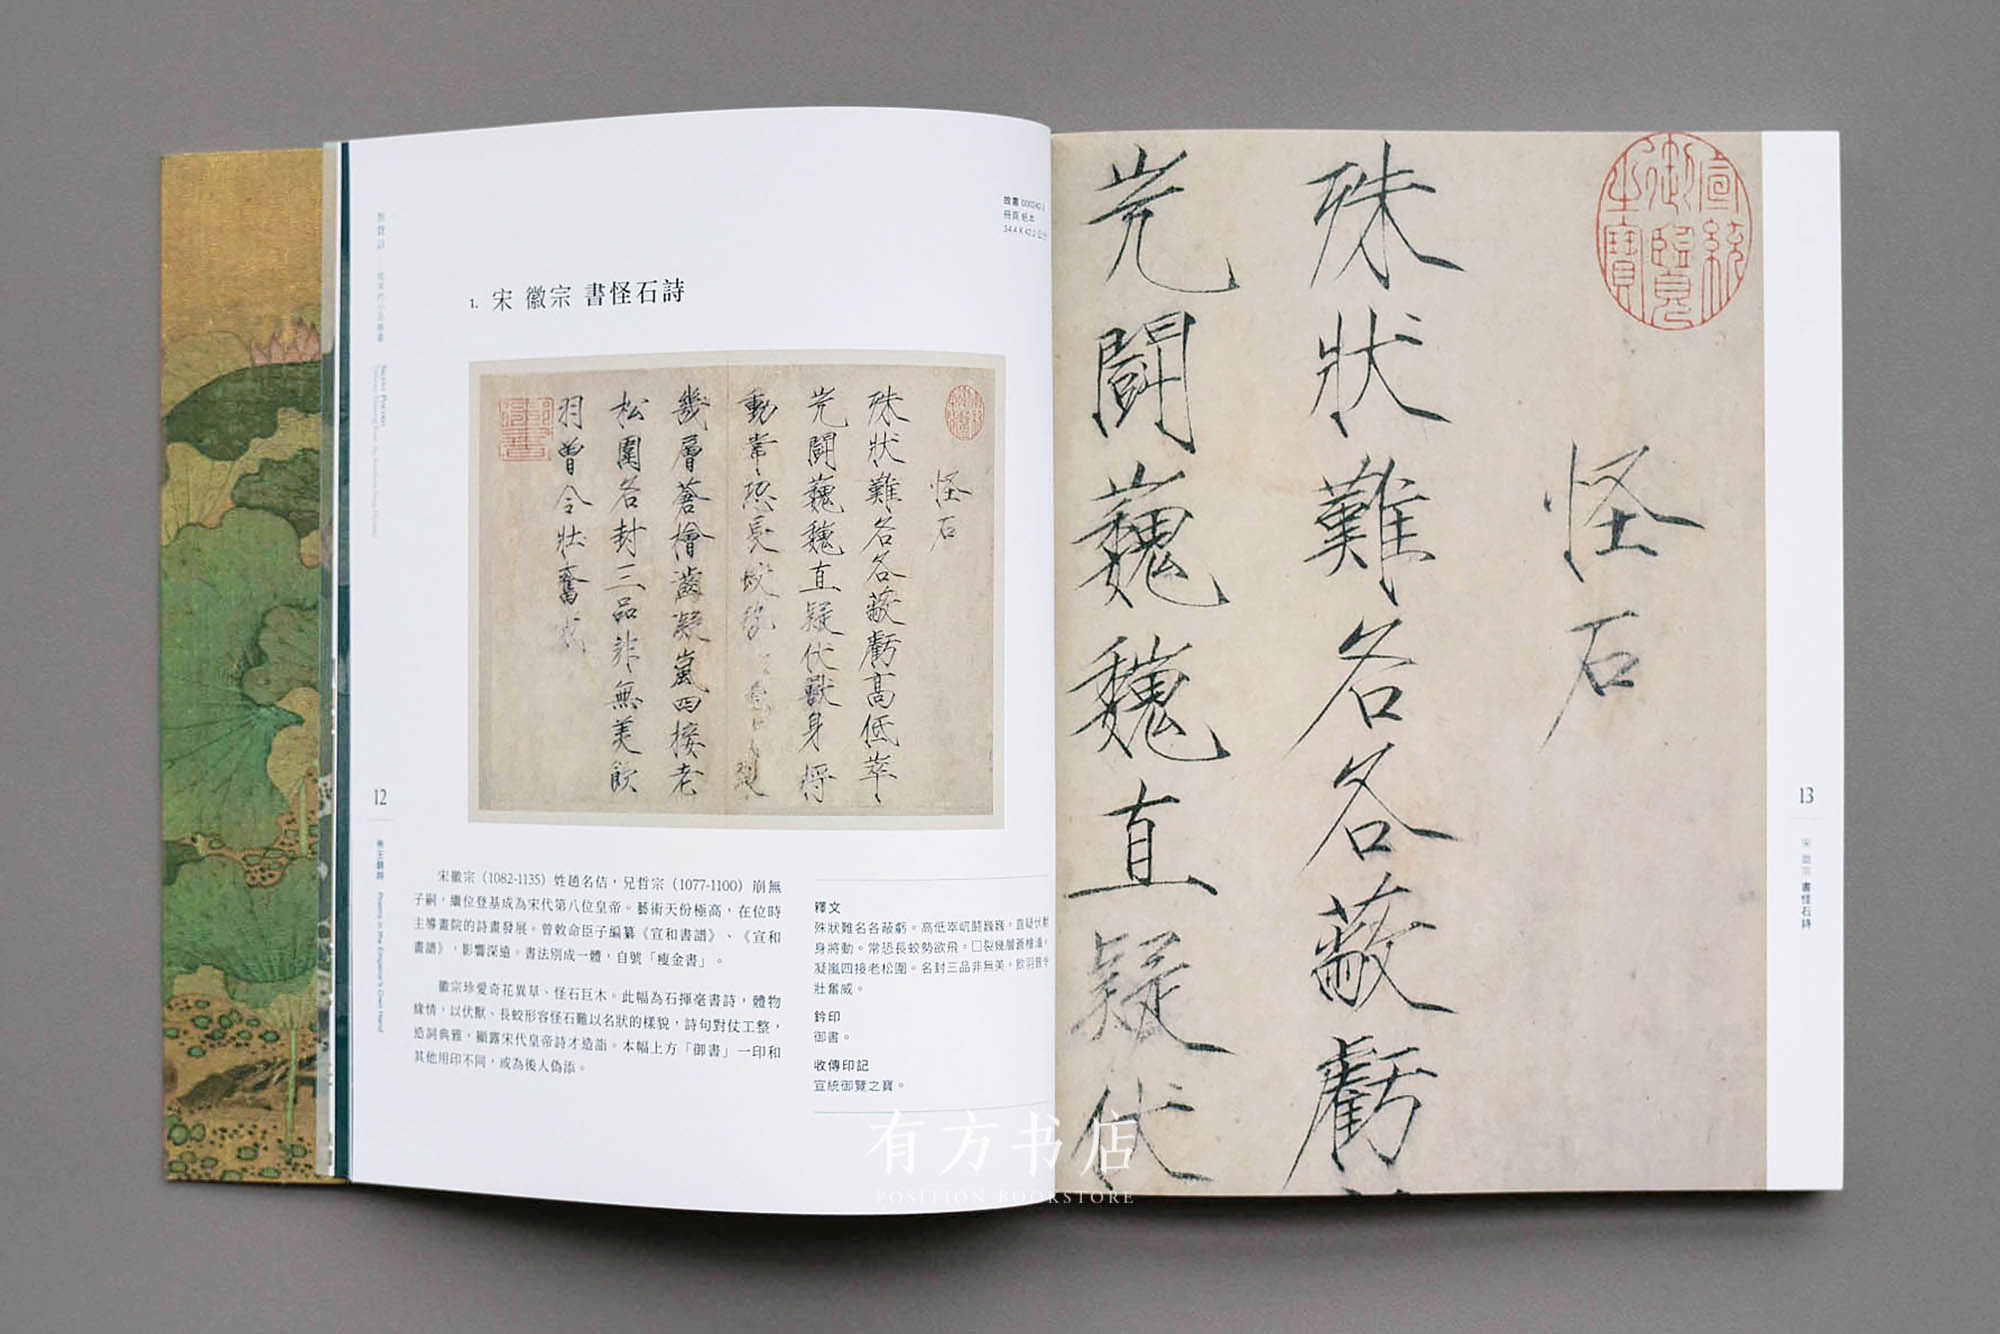 故畫 000242-2
冊頁 紙本
1. 宋 徽宗 書怪石詩
怪石
殊狀難名各蔽虧高低崒
屼鬪巍巍直疑伏獸身將
動常恐長蛟勢
幾層蒼檜齒凝嵐四接老
松圍名封三品非無美飲
羽曾令壯奮威
12
帝王翰靜 Poems in the Emperor's Own Hand
宋徽宗（1082-1135）姓趙名佶，兄哲宗（1077-1100）崩無
子嗣，繼位登基成為宋代第八位皇帝。藝術天份極高，在位時
主導畫院的詩畫發展。曾敕命臣子編纂《宣和書譜》、《宣和
畫譜》，影響深遠。書法別成一體，自號「瘦金書」。
徽宗珍愛奇花異草、怪石巨木。此幅為石揮毫書詩，體物
緣情，以伏獸、長蛟形容怪石難以名狀的樣貌，詩句對仗工整，
造詞典雅，顯露宋代皇帝詩才造詣。本幅上方「御書」一印和
其他用印不同，或為後人偽添。
釋文
殊狀難名各蔽虧。高低崒屼鬪巍巍。直疑伏獸
身將動。常恐長蛟勢欲飛。□裂幾層蒼檜
凝嵐四接老松圍。名封三品非無美。飲羽曾令
壯奮威。
鈐印
御書。
收傳印記
宣統御覽之寶。
宣統御覽之寶
怪石
殊狀難名各蔽虧
屼鬪巍巍直疑伏
13
宋 徽宗 書怪石詩
有方书店
POSITION BOOKSTORE